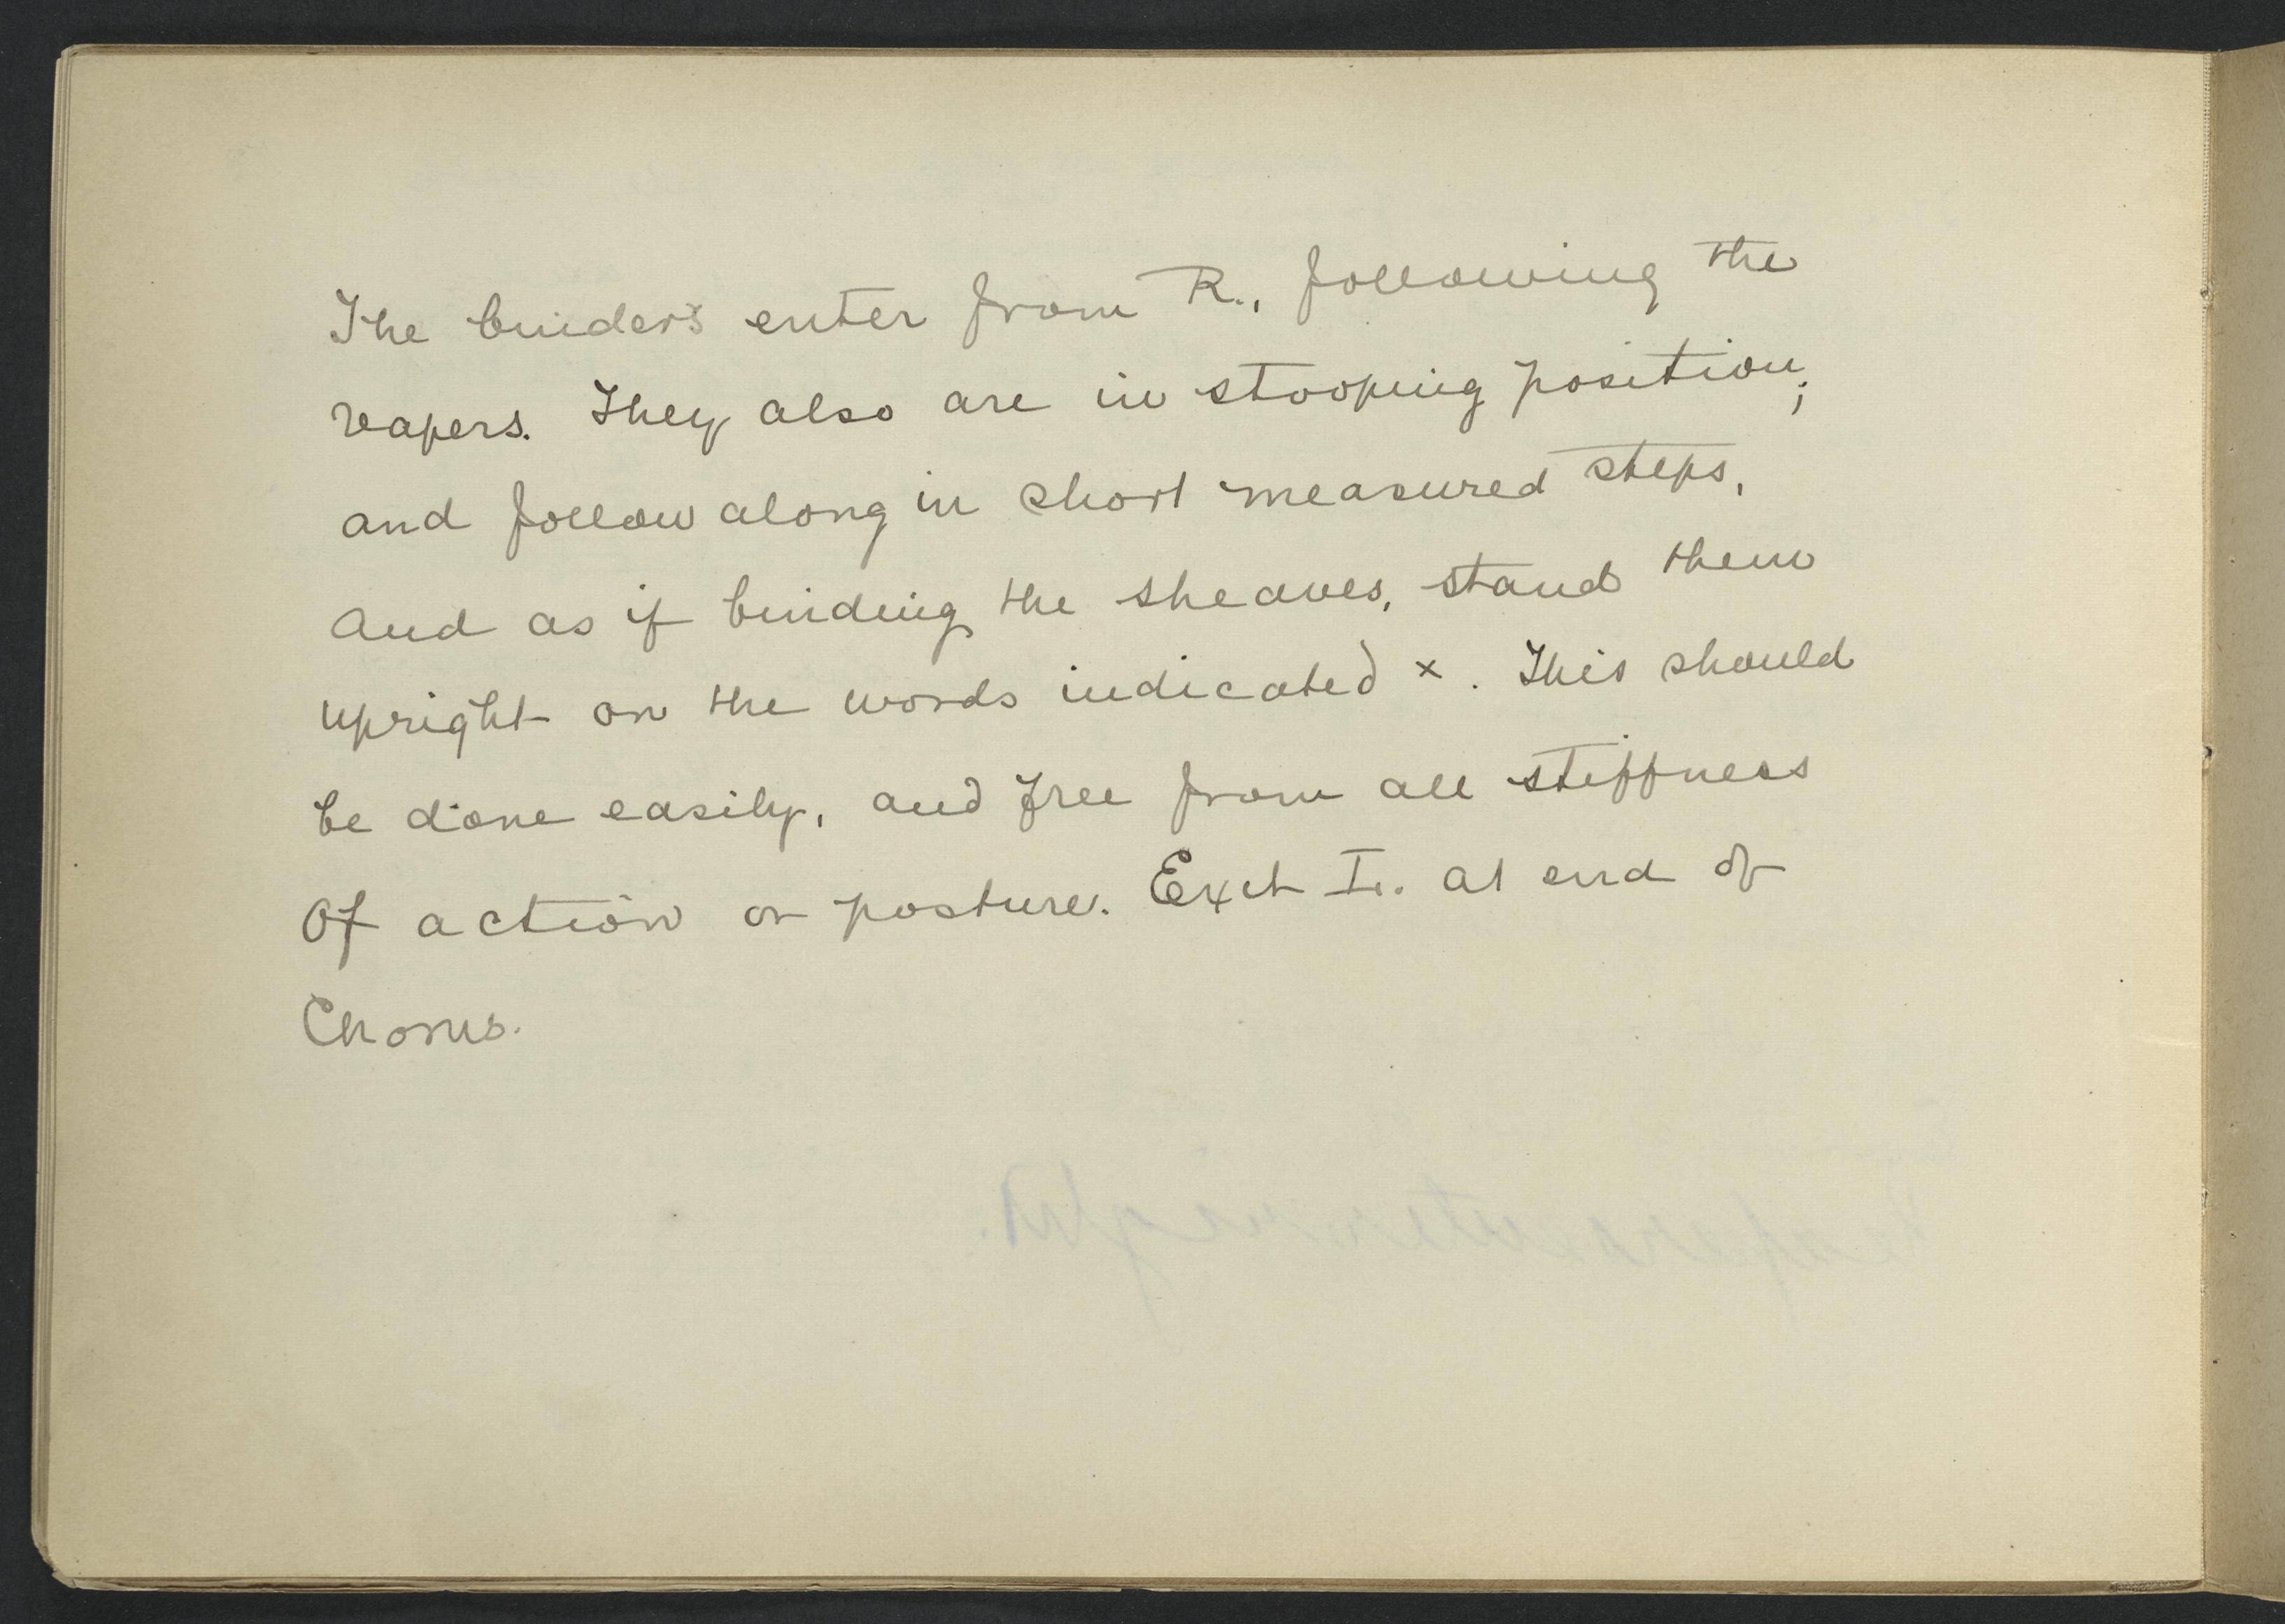 The binders enter from R., following the
reapers. They also are in stooping position,
and follow along in short measured steps,
and as if binding the sheaves, stand them
upright on the words indicated x. This should
be done easily, and free from all stiffness
of action or posture. Exit L. at end of
Chorus.